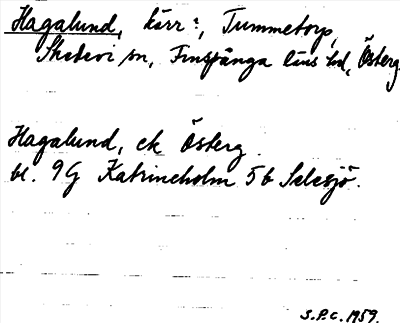 Hagalund, kärr?, Tummetorp,
Skedevi sn, Finspånga läns hd, Österg.
Hagalund, ek Österg.
bl. 9G Katrineholm 5b Selesjö.
S.P.C. 1959.